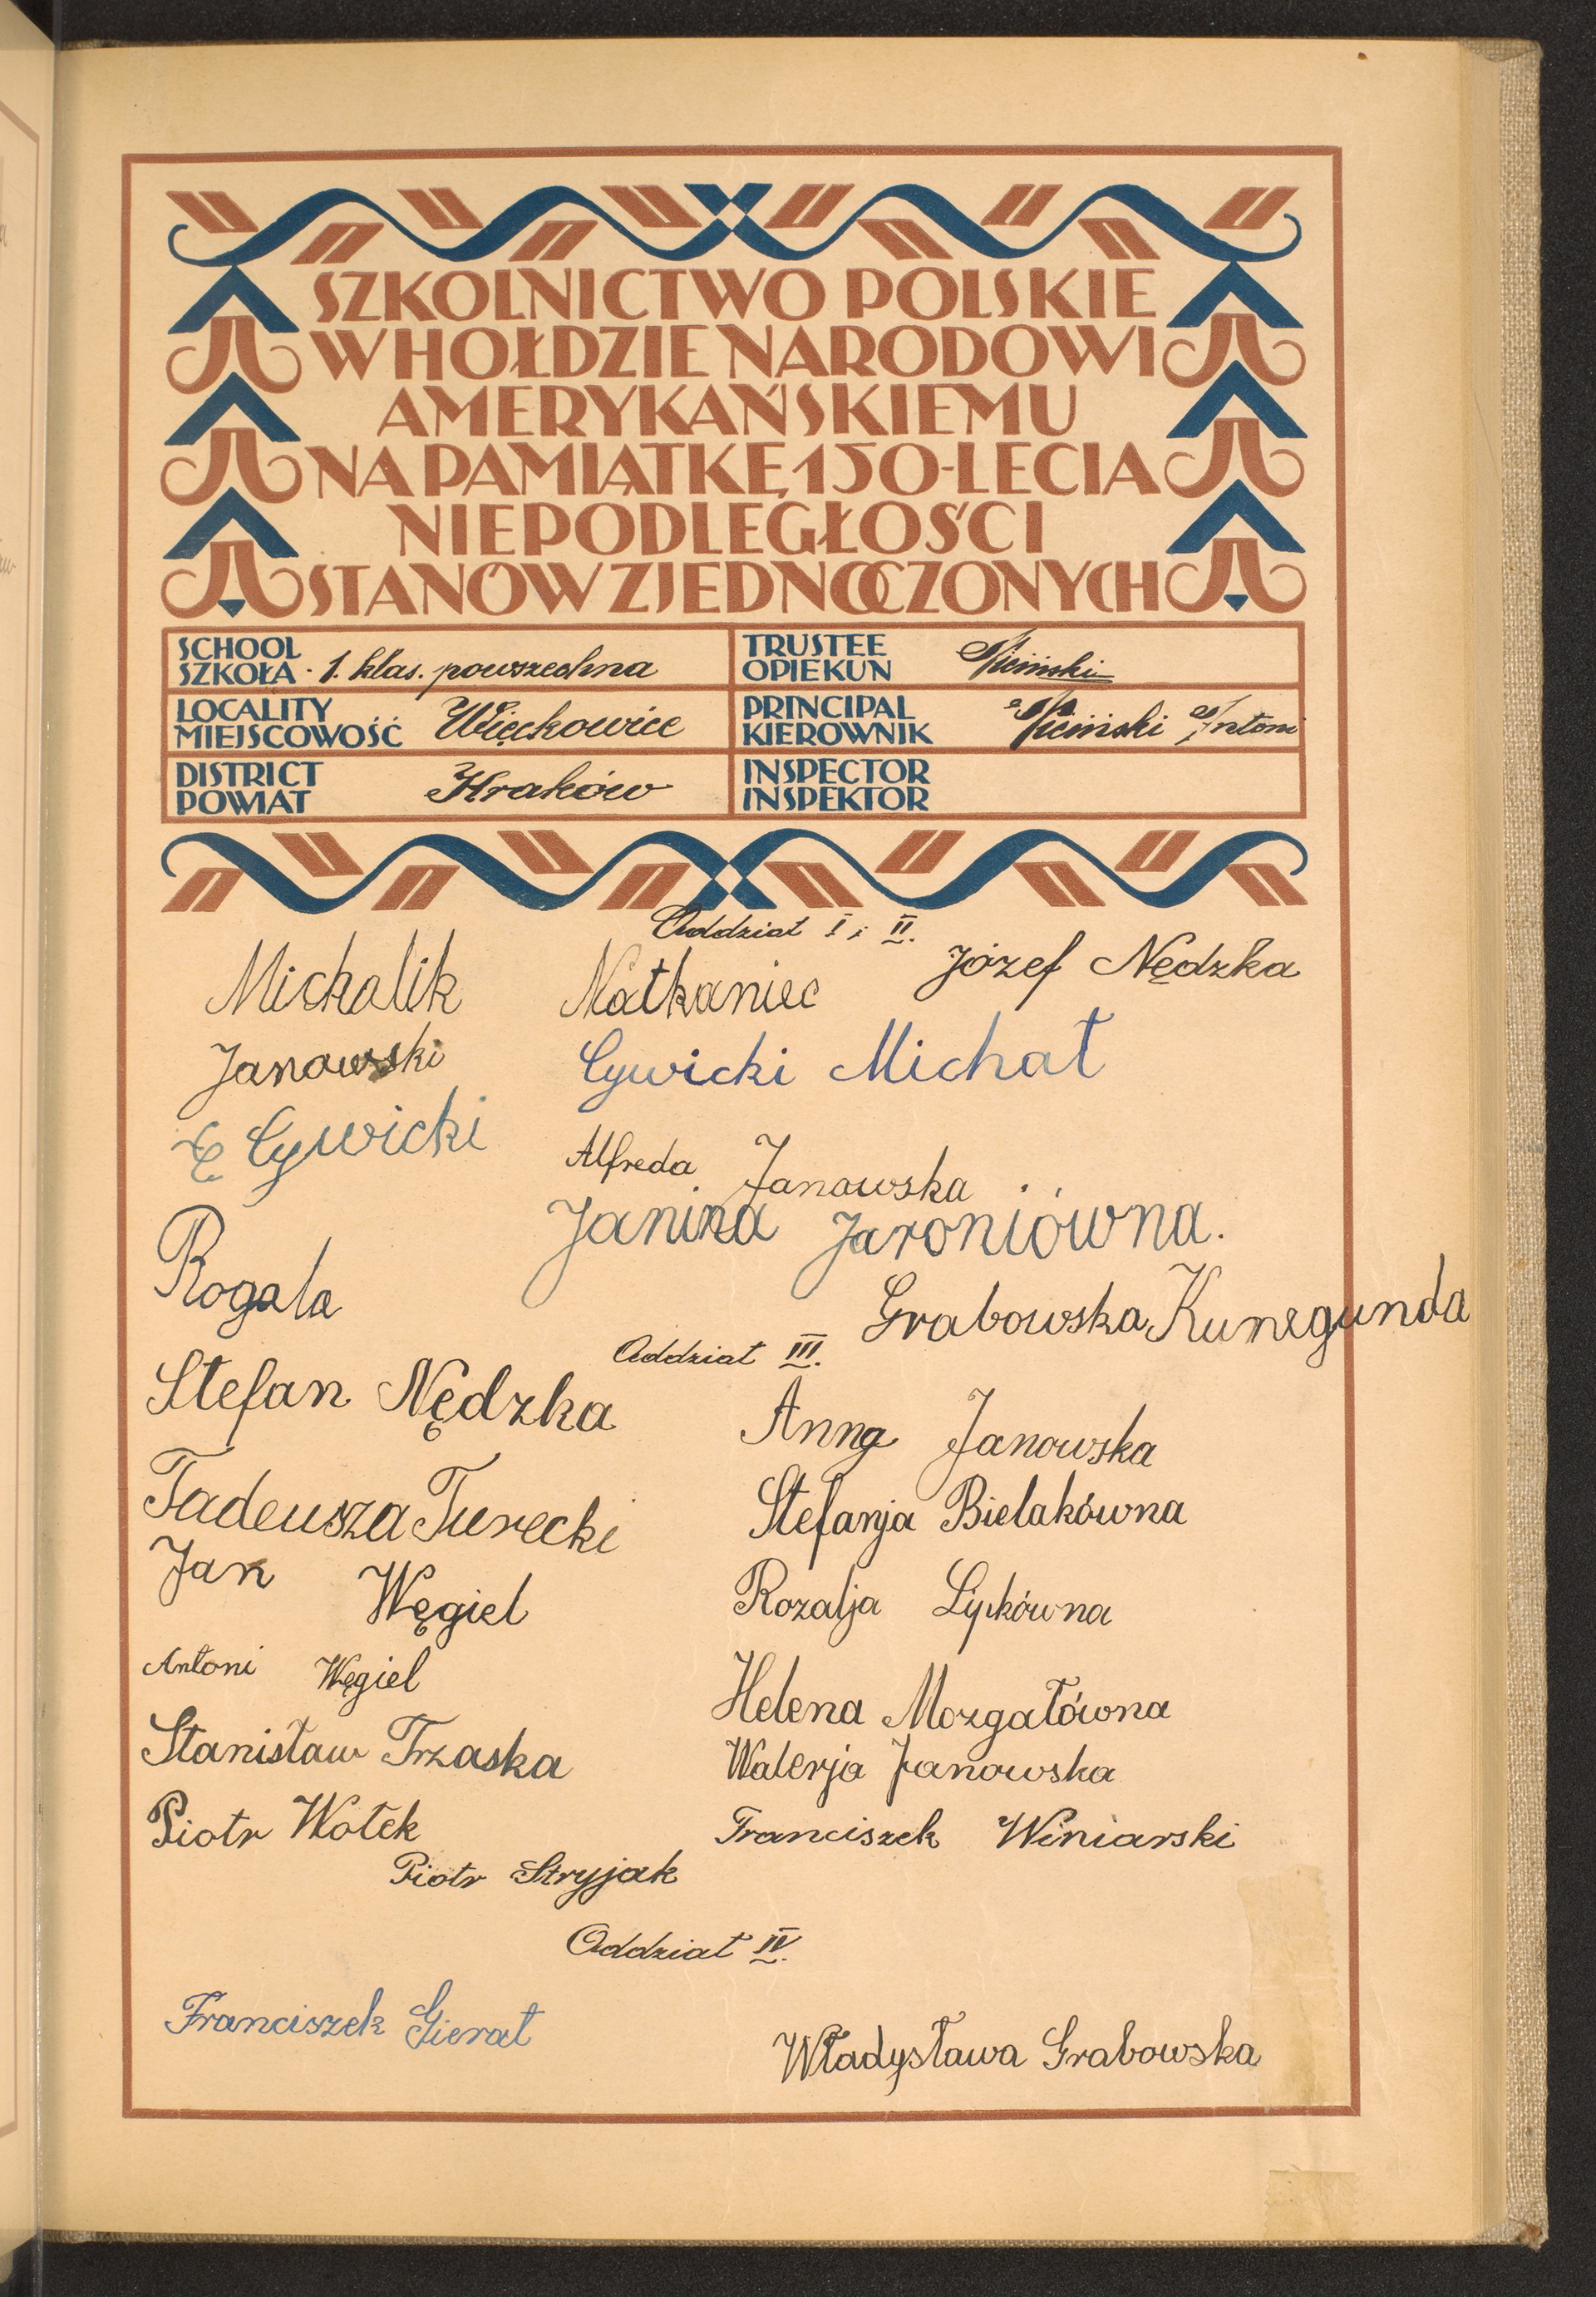 SZKOLNICTWO POLSKIE
W HOŁDZIE NARODOWI
AMERYKAŃSKIEMU
NA PAMIĄTKĘ 150-LECIA
NIEPODLEGŁOŚCI
STANÓW ZJEDNOCZONYCH
SCHOOL
SZKOŁA - 1. klas. powszechna
TRUSTEE
OPIEKUN
LOCALITY
MIEJSCOWOŚĆ Więckowice
PRINCIPAL
KIEROWNIK Antoni
DISTRICT
POWIAT Kraków
INSPECTOR
INSPEKTOR
Oddział I i II.
Michalik Natkaniec Józef Nędzka
Janowski Cywicki Michał
E Cywicki Alfreda Janowska
Janina Jaroniówna.
Rogala Grabowska Kunegunda
Oddział III.
Stefan Nędzka Anna Janowska
Tadeusza Turecki Stefanja Bielakówna
Jan Węgiel Rozalja Lipkówna
Antoni Węgiel Helena Mozgałówna
Stanisław Trzaska Walerja Janowska
Piotr Wołek Franciszek Winiarski
Piotr Stryjak
Oddział IV.
Franciszek Gierat Władysława Grabowska